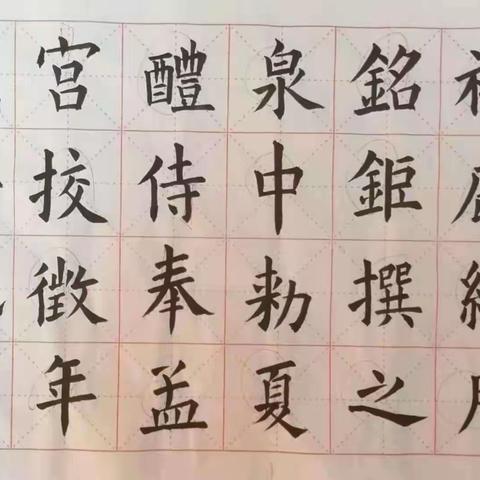 宫醴泉銘
挍侍中鉅
徵奉勅撰
年孟夏之